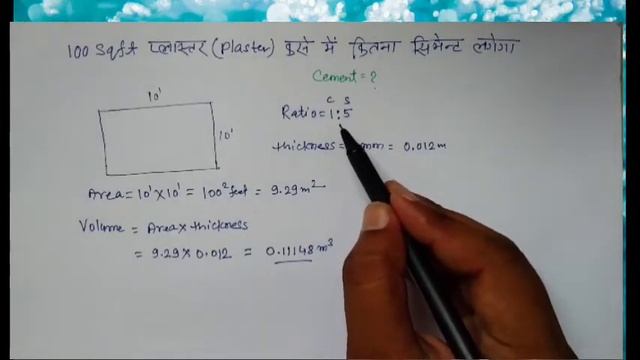 100 Sqft प्लास्तर (Plaster) करने में कितना सिमेन्ट लगेगा
Cement = ?
10'
C S
Ratio = 1:5
10'
thickness = mm = 0.012m
Area = 10' × 10' = 100² feet = 9.29 m²
Volume = Area × thickness
= 9.29 × 0.012 = 0.11148 m³